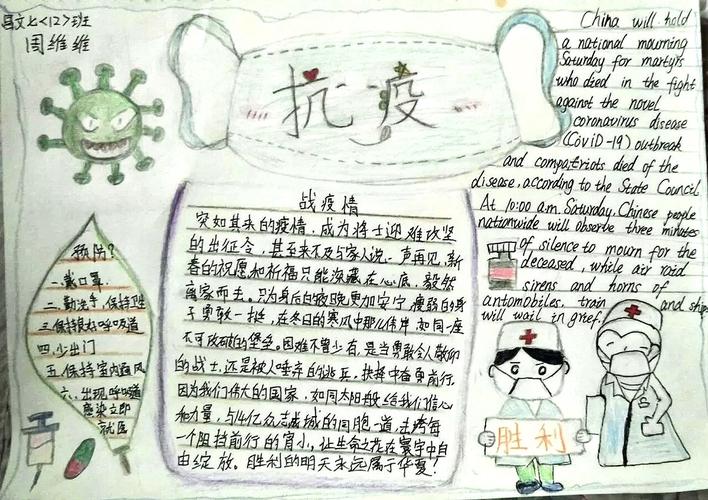 昌文七<12>班
周维维
抗疫
China will hold
a national mourning
Saturday for martyrs
who died in the fight
against the novel
coronavirus disease
(CoviD-19) outbreak
and compatriots died of the
disease, according to the State Council
At 10:00 a.m. Saturday, Chinese people
nationwide will observe three minutes
of silence to mourn for the
deceased, while air raid
sirens and horns of
automobiles, train and ships
will wail in grief.
战疫情
突如其来的疫情,成为将士迎难攻坚
的出征令,甚至来不及与家人说一声再见,新
春的祝愿和祈福只能深藏在心底,毅然
离家而去。只为身后的夜晚更加安宁,瘦弱的身
子勇敢一挺,在冬日的寒风中那么伟岸,如同一座
不可攻破的堡垒。困难不算少有,是当勇敢令人敬仰
的战士,还是被人唾弃的逃兵,抉择中奋勇前行,
因为我们伟大的国家,如同太阳般给我们信心
和力量,与14亿众志成城的同胞一道,击溃每
一个阻挡前行的宵小,让生命之花在寰宇中自
由绽放。胜利的明天永远属于华夏!
预防?
一.戴口罩
二.勤洗手,保持卫生
三.保持良好呼吸道
四.少出门
五.保持室内通风
六.出现呼吸道
感染立即
就医
胜利